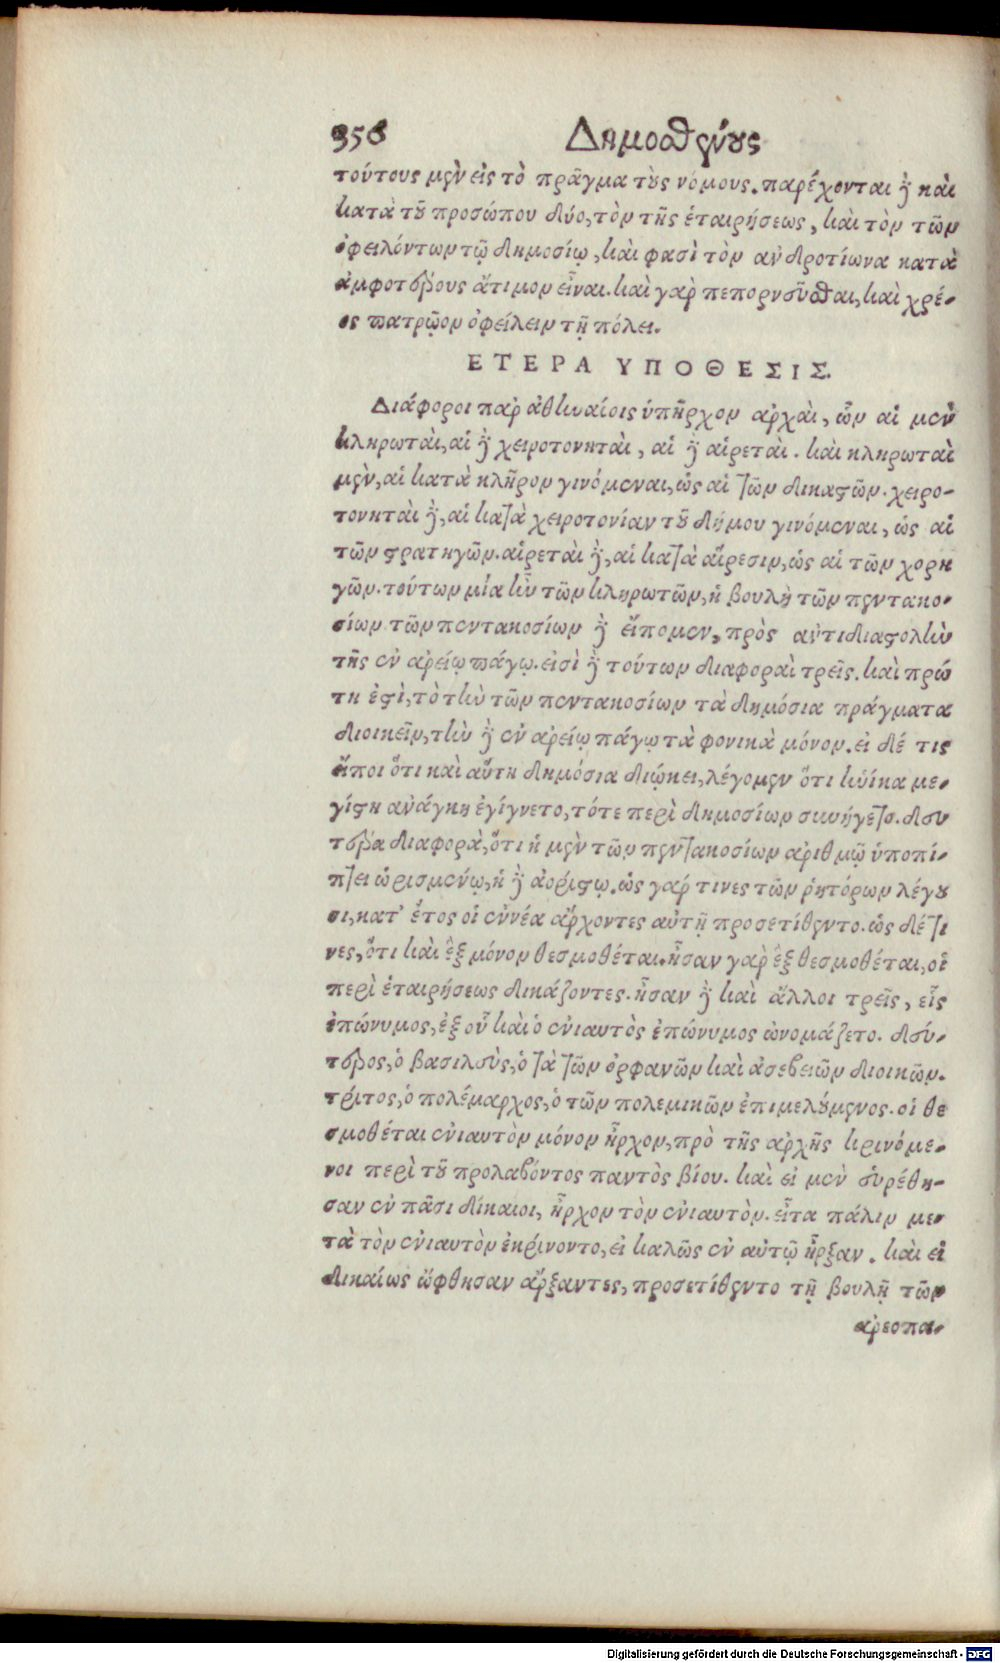 356 Δημοσθένους
τούτους μὲν εἰς τὸ πρᾶγμα τοὺς νόμους. παρέχονται δὲ καὶ
κατὰ τοῦ προσώπου δύο, τὸν τῆς ἑταιρήσεως, καὶ τὸν τῶν
ὀφειλόντων τῷ δημοσίῳ, καὶ φασὶ τὸν ἀνδροτίωνα κατὰ
ἀμφοτέρους ἄτιμον εἶναι. καὶ γὰρ πεπορνεῦσθαι, καὶ χρέ-
ος πατρῷον ὀφείλειν τῇ πόλει.
ΕΤΕΡΑ ΥΠΟΘΕΣΙΣ.
Διάφοροι παρ ἀθηναίοις ὑπῆρχον ἀρχαὶ, ὧν αἱ μὲν
κληρωταὶ, αἱ δὲ χειροτονηταὶ, αἱ δὲ αἱρεταὶ. καὶ κληρωταὶ
μὲν, αἱ κατὰ κλῆρον γινόμεναι, ὡς αἱ τῶν δικαστῶν. χειρο-
τονηταὶ δὲ, αἱ κατὰ χειροτονίαν τοῦ δήμου γινόμεναι, ὡς αἱ
τῶν στρατηγῶν. αἱρεταὶ δὲ, αἱ κατὰ αἵρεσιν, ὡς αἱ τῶν χορη
γῶν. τούτων μία ἦν τῶν κληρωτῶν, ἡ βουλὴ τῶν πεντακο-
σίων. τῶν πεντακοσίων δὲ εἴπομεν, πρὸς ἀντιδιαστολὴν
τῆς ἐν ἀρείῳ πάγῳ. εἰσὶ δὲ τούτων διαφοραὶ τρεῖς. καὶ πρώ
τη ἐστὶ, τὸ τὴν τῶν πεντακοσίων τὰ δημόσια πράγματα
διοικεῖν, τὴν δὲ ἐν ἀρείῳ πάγῳ τὰ φονικὰ μόνον. εἰ δέ τις
εἴποι ὅτι καὶ αὕτη δημόσια διῴκει, λέγομεν ὅτι ἡνίκα με-
γίστη ἀνάγκη ἐγίγνετο, τότε περὶ δημοσίων συνήγετο. δευ
τέρα διαφορὰ, ὅτι ἡ μὲν τῶν πεντακοσίων ἀριθμῷ ὑποπί-
πτει ὡρισμένῳ, ἡ δὲ ἀορίστῳ. ὡς γάρ τινες τῶν ῥητόρων λέγου
σι, κατ' ἔτος οἱ ἐννέα ἄρχοντες αὐτῇ προσετίθεντο. ὡς δέ τι
νες, ὅτι καὶ ἓξ μόνον θεσμοθέται. ἦσαν γὰρ ἓξ θεσμοθέται, οἱ
περὶ ἑταιρήσεως δικάζοντες. ἦσαν δὲ καὶ ἄλλοι τρεῖς, εἷς
ἐπώνυμος, ἐξ οὗ καὶ ὁ ἐνιαυτὸς ἐπώνυμος ὠνομάζετο. δεύ-
τερος, ὁ βασιλεὺς, ὁ τὰ τῶν ὀρφανῶν καὶ ἀσεβειῶν διοικῶν.
τρίτος, ὁ πολέμαρχος, ὁ τῶν πολεμικῶν ἐπιμελούμενος. οἱ θε
σμοθέται ἐνιαυτὸν μόνον ἦρχον, πρὸ τῆς ἀρχῆς κρινόμε-
νοι περὶ τοῦ προλαβόντος παντὸς βίου. καὶ εἰ μὲν εὑρέθη-
σαν ἐν πᾶσι δίκαιοι, ἦρχον τὸν ἐνιαυτὸν. εἶτα πάλιν με-
τὰ τὸν ἐνιαυτὸν ἐκρίνοντο, εἰ καλῶς ἐν αὐτῷ ἦρξαν. καὶ εἰ
δικαίως ὤφθησαν ἄρξαντες, προσετίθεντο τῇ βουλῇ τῶν
ἀρεοπα-
Digitalisierung gefördert durch die Deutsche Forschungsgemeinschaft - DFG